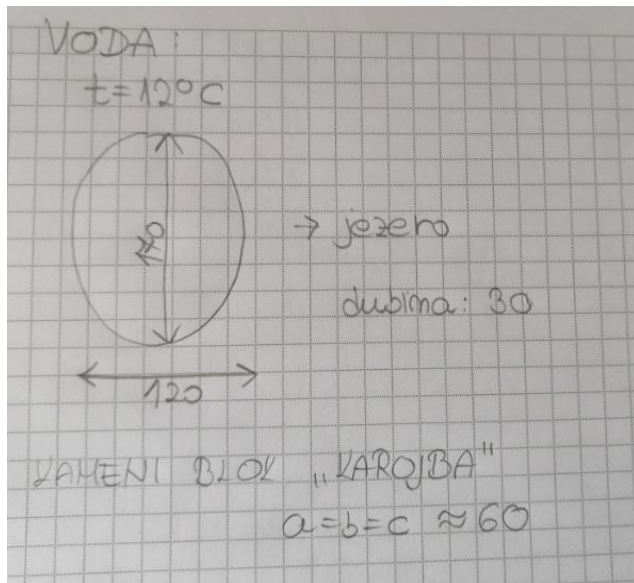 VODA:
t=12°C
170
→ jezero
dubina: 30
120
KAMENI BLOK „KAROJBA"
a=b=c ≈ 60